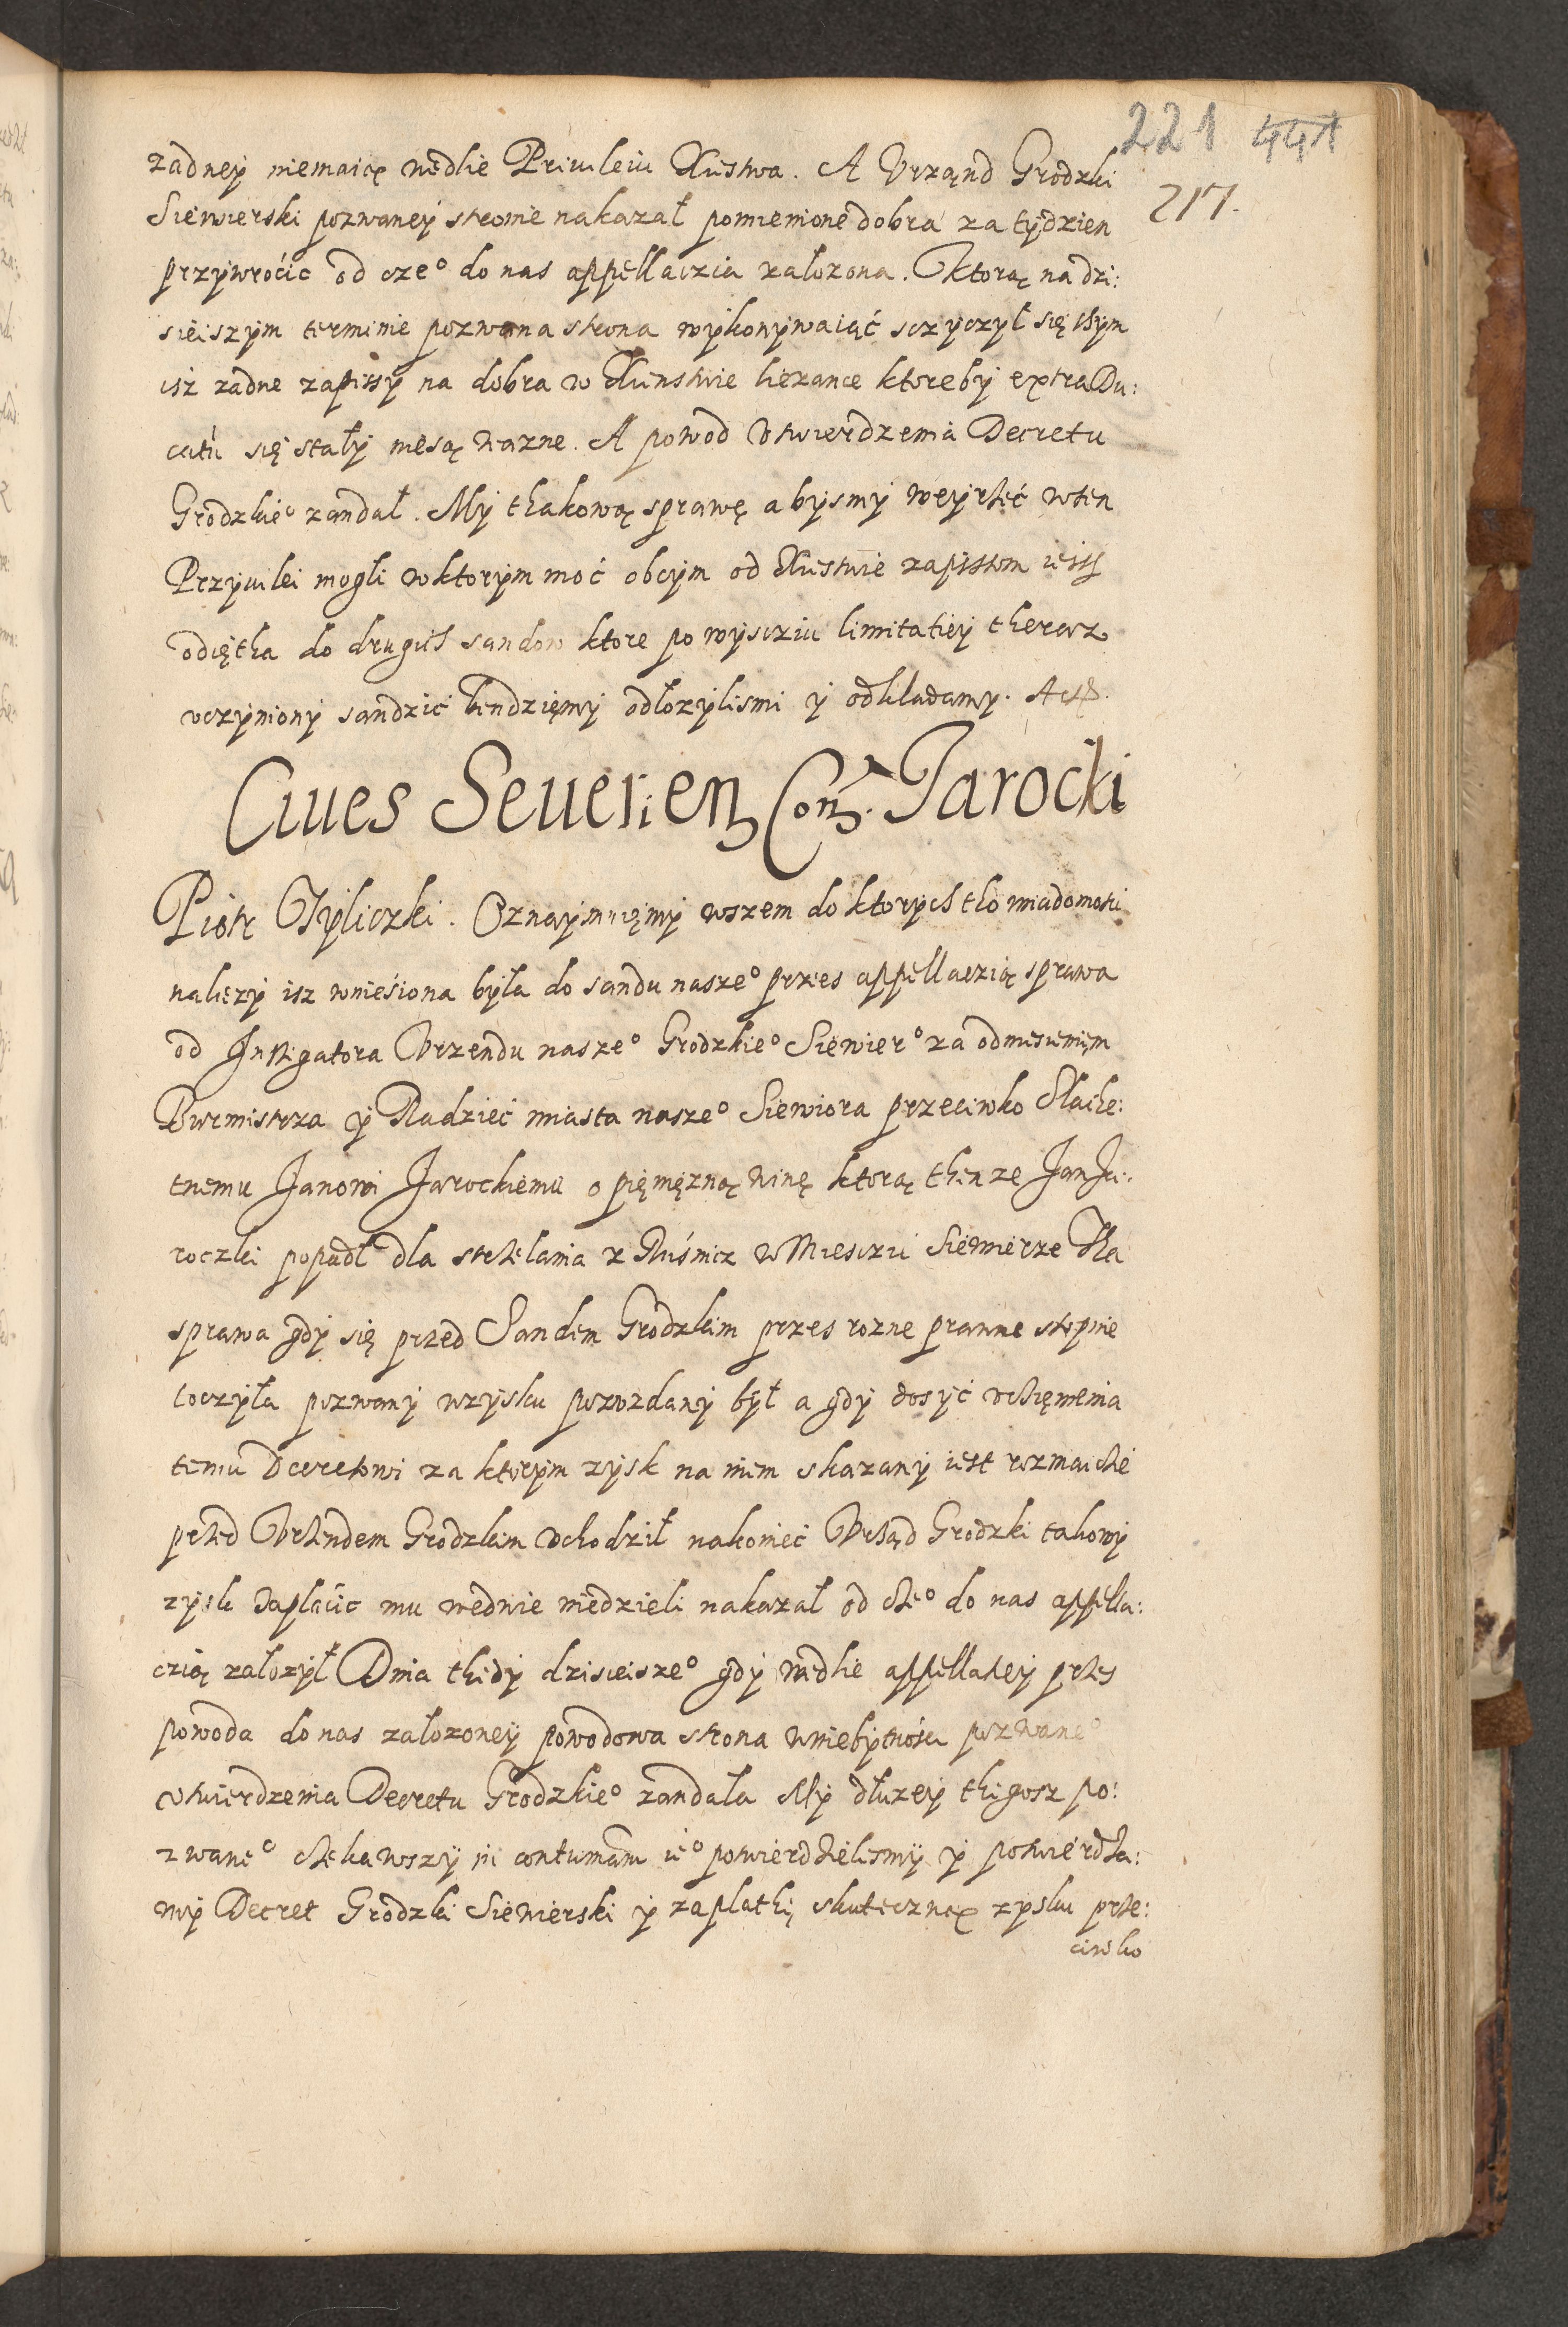 221 441
217.
zadney niemaiąc wedlie Priuileiu Xiestwa. A Vrząnd Grodzki
Siewierski pozwaney stronie nakazał pomienione dobra za tydzien
przywrócic od cze° do nas appellaczia załozona. Ktorą na dzi:
sieiszym terminie pozwana strona wykonywaiąć sczyczył się thym
isz zadne zapissy na dobra w Xienstwie liezance ktoreby extra Du:
catu się stały niesą wazne. A powod vtwierdzenia Decretu
Grodzkie° zandał. My thakową sprawę abysmy weyrzeć wten
Przywilei mogli wktorym moć obcym od Xiestwie zapissom iest
odiętha do drugich sandow ktore po wysczciu limitatiey theraz
vczyniony sandzić bendziemy odłozylismi y odkładamy. Actß.
Ciues Seuerien Con. Jarocki
Piotr Tyliczki. Oznaymuięmy wszem do ktorych tho wiadomosci
naliezy isz wniesiona była do sandu nasze° przes appellaczią sprawa
od Instigatora Vrzendu nasze° Grodzkie° Siewier° za odniesieniem
Burmistrza y Radziec miasta nasze° Siewiora przeciwko Slache:
tnemu Janowi Jarockiemu o pięnięzną winę ktorą thenze Jan Ja:
roczki popadł dla strzelania z Ruśnicz w Miesczii Siewierze Tha
sprawa gdy się przed Sandem Grodzkim przes rozne prawne stopnie
toczyła pozwany wzysku powzdany był a gdy dosyć vczięnienia
temu Decretowi za ktorym zysk na niem skazany iest rozmaicie
przed Vrzendem Grodzkim vchodził nakoniec Vrząd Grodzki takowy
zysk zapłacic mu wedwie niedzieli nakazał od cze° do nas appella:
czią załozył Dnia thedy dzisieisze° gdy wedlie appellatiey przes
powoda do nas załozoney powodowa strona wniebytnosci pozwane°
vtwierdzenia Decretu Grodzkie° zandała My dłuzey thegosz po:
zwane° czekawszy in contumam ie° potwierdzielismy y potwierdza:
my Decret Grodzki Siewierski y zapłathę skuteczną zysku prze:
ciwko